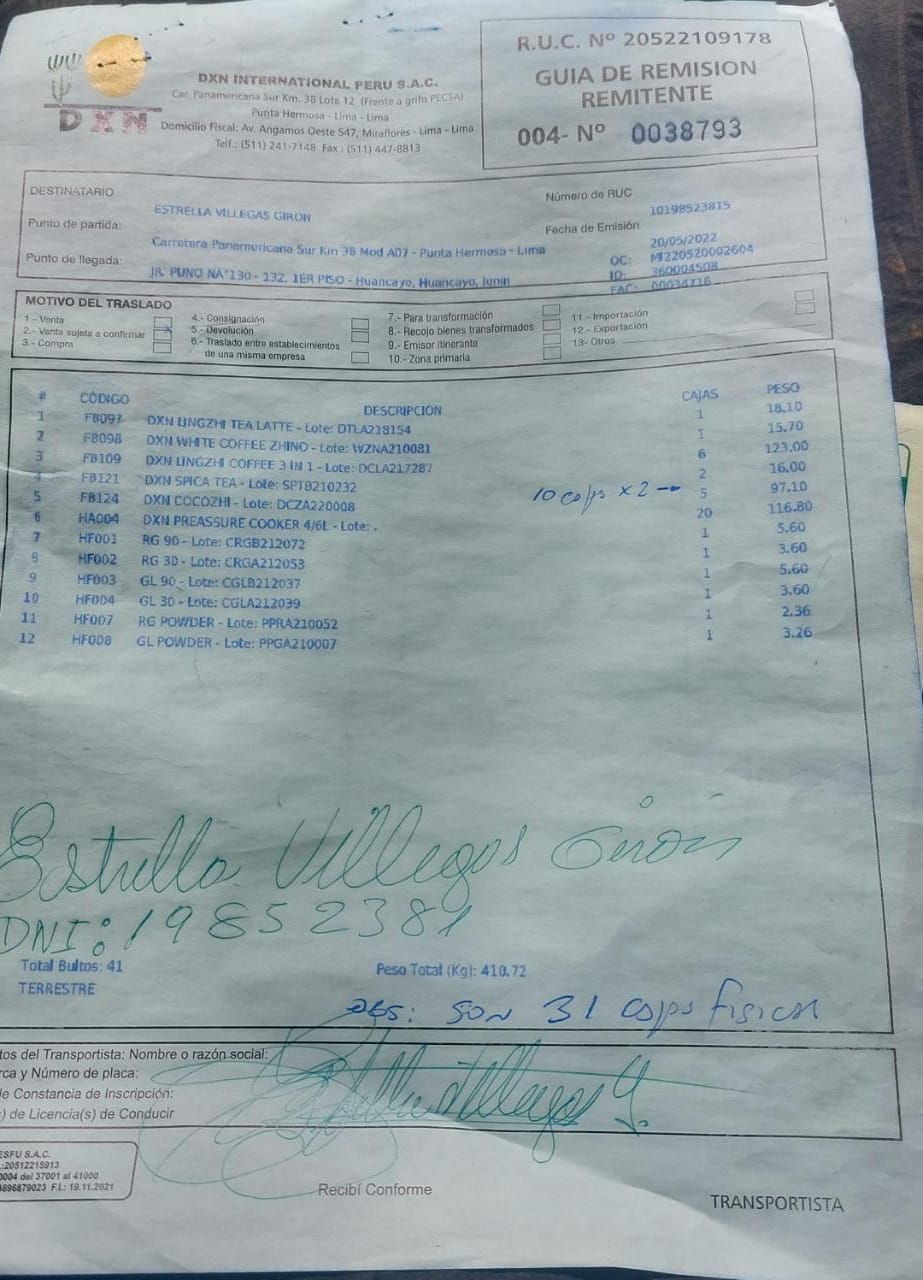 DXN
DXN INTERNATIONAL PERU S.A.C.
Car. Panamericana Sur Km. 38 Lote 12 (Frente a grifo PECSA)
Punta Hermosa - Lima - Lima
Domicilio Fiscal: Av. Angamos Oeste 547, Miraflores - Lima - Lima
Telf.: (511) 241-7148 Fax : (511) 447-8813
R.U.C. Nº 20522109178
GUIA DE REMISION
REMITENTE
004- Nº 0038793
DESTINATARIO
ESTRELLA VILLEGAS GIRON
Número de RUC
10198523815
Punto de partida:
Carretera Panamericana Sur Km 38 Mod A07 - Punta Hermosa - Lima
Fecha de Emisión
20/05/2022
Punto de llegada:
JR. PUNO NA°130 - 132, 1ER PISO - Huancayo, Huancayo, Junin
OC: MI220520002604
ID: 360004508
FAC: 00034716
MOTIVO DEL TRASLADO
1.- Venta
2.- Venta sujeta a confirmar
3.- Compra
4.- Consignación
5.- Devolución
6.- Traslado entre establecimientos
de una misma empresa
7.- Para transformación
8.- Recojo bienes transformados
9.- Emisor itinerante
10.- Zona primaria
11.- Importación
12.- Exportación
13- Otros
# CÓDIGO DESCRIPCIÓN CAJAS PESO
1 FB097 DXN LINGZHI TEA LATTE - Lote: DTLA218154 1 18.10
2 FB098 DXN WHITE COFFEE ZHINO - Lote: WZNA210081 1 15.70
3 FB109 DXN LINGZHI COFFEE 3 IN 1 - Lote: DCLA217287 6 123.00
4 FB121 DXN SPICA TEA - Lote: SPTB210232 2 16.00
5 FB124 DXN COCOZHI - Lote: DCZA220008 5 97.10
6 HA004 DXN PREASSURE COOKER 4/6L - Lote: . 10 cajas x 2 → 20 116.80
7 HF001 RG 90 - Lote: CRGB212072 1 5.60
8 HF002 RG 30 - Lote: CRGA212053 1 3.60
9 HF003 GL 90 - Lote: CGLB212037 1 5.60
10 HF004 GL 30 - Lote: CGLA212039 1 3.60
11 HF007 RG POWDER - Lote: PPRA210052 1 2.36
12 HF008 GL POWDER - Lote: PPGA210007 1 3.26
Estrella Villegas Girón
DNI: 19852381
Total Bultos: 41 Peso Total (Kg): 410.72
TERRESTRE
OBS: SON 31 cajas fisicas
tos del Transportista: Nombre o razón social:
rca y Número de placa:
de Constancia de Inscripción:
) de Licencia(s) de Conducir
Estrella Villegas G.
ESFU S.A.C.
:20512215913
0004 del 37001 al 41000
0696879023 F.I.: 19.11.2021
Recibí Conforme
TRANSPORTISTA